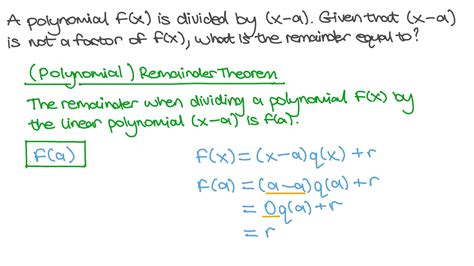 A polynomial f(x) is divided by (x-a). Given that (x-a)
is not a factor of f(x), what is the remainder equal to?
(Polynomial) Remainder Theorem
The remainder when dividing a polynomial f(x) by
the linear polynomial (x-a) is f(a).
f(a)
f(x) = (x-a)q(x) + r
f(a) = (a-a)q(a) + r
= 0q(a) + r
= r